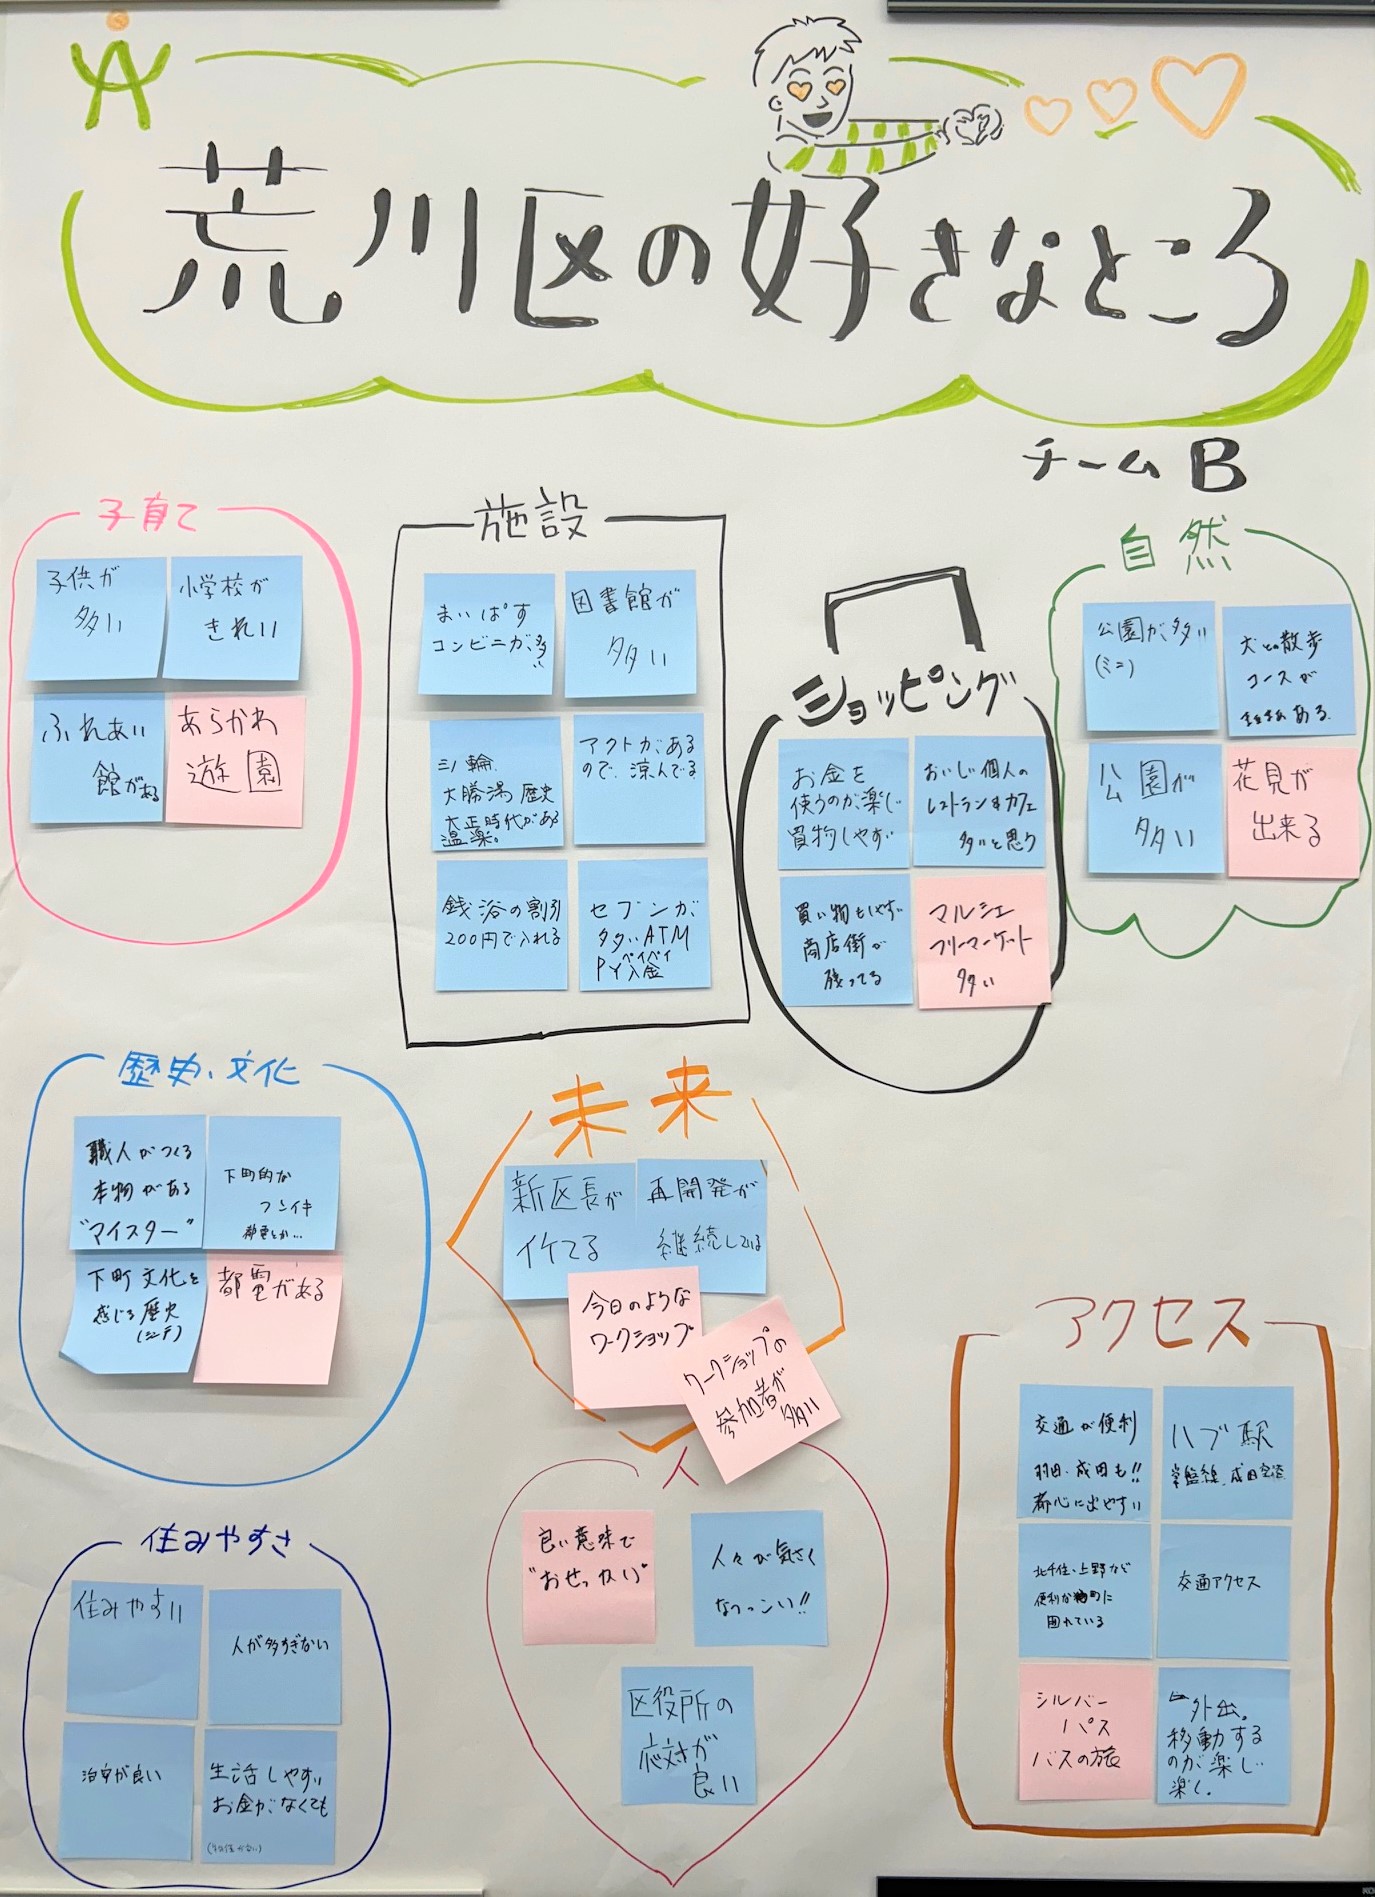 荒川区の好きなところ
チームB
子育て
子供が
多い
小学校が
きれい
ふれあい
館がある
あらかわ
遊園
施設
まいばす
コンビニが多い
図書館が
多い
三ノ輪
大勝湯 歴史
大正時代がある
温薬。
アクトがある
ので、涼んでる
銭浴の割引
200円で入れる
セブンが
多いATM
ペイペイ
PY入金
ショッピング
お金を
使うのが楽し
買物しやすい
おいしい個人の
レストラン&カフェ
多いと思う
買い物しやすい
商店街が
残ってる
マルシェ
フリーマーケット
多い
自然
公園が多い
(ミニ)
犬との散歩
コースが
ある
公園が
多い
花見が
出来る
歴史、文化
職人がつくる
本物がある
"マイスター"
下町的な
フンイキ
都電とか…
下町文化を
感じる歴史
都電がある
未来
新区長が
イケてる
再開発が
継続している
今日のような
ワークショップ
ワークショップの
参加者が
多い
アクセス
交通が便利
羽田、成田も!!
都心に出やすい
ハブ駅
常盤線、成田空港
北千住、上野など
便利な町に
囲れている
交通アクセス
シルバー
パス
バスの旅
外出。
移動する
のが楽しい
楽く。
住みやすさ
住みやすい
人が多すぎない
治安が良い
生活しやすい
お金がなくても
人
良い意味で
"おせっかい"
人々が気さく
なつっこい!!
区役所の
応対が
良い